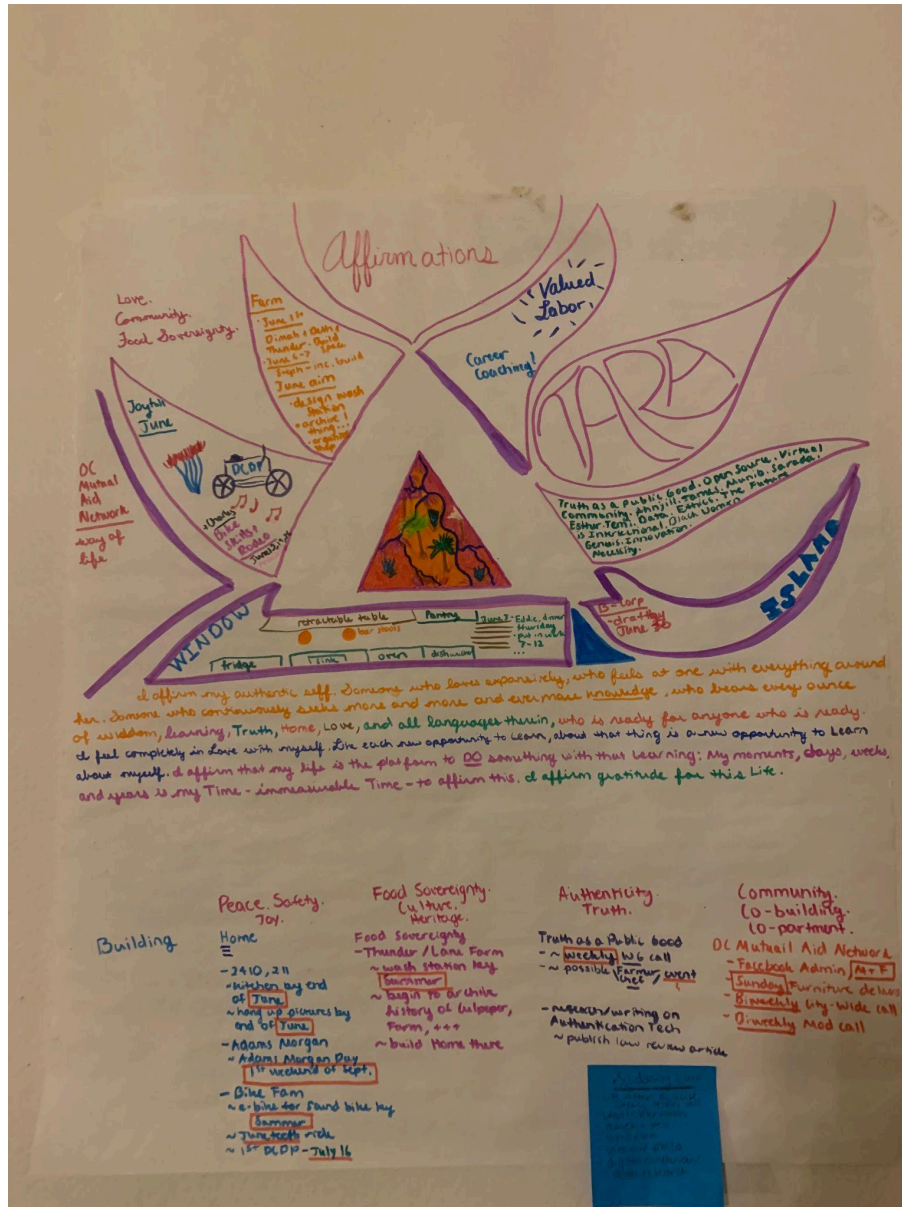 Affirmations
Love.
Community.
Food Sovereignty.
Farm
June 1st
Thunder. Build
June 6-7 Space
June aim
design wash
station
archive 1
thing...
Valued
Labor,
Career
Coaching!
TARA
Joyful
June
DCDP
Bike
Skills +
Rodeo
DC
Mutual
Aid
Network
way of
life
Truth as a Public Good. Open Source. Virtual
Community.
Esther. Temi. Data. Ethics. The Future
is Intersectional. Black Women
Genius. Innovation.
Necessity.
ISLAND
B-Corp
-draft by
June 30
WINDOW
retractable table
bar stools
Pantry
fridge
sink
oven
7-12
I affirm my authentic self. Someone who loves expansively, who feels at one with everything around
her. Someone who continuously seeks more and more and evermore knowledge, who bears every ounce
of wisdom, learning, Truth, Home, Love, and all languages therein, who is ready for anyone who is ready.
I feel completely in Love with myself. Like each new opportunity to Learn, about that thing is a new opportunity to Learn
about myself. I affirm that my life is the platform to DO something with that Learning: My moments, days, weeks,
and years is my Time - immeasurable Time - to affirm this. I affirm gratitude for this Life.
Building
Peace. Safety.
Joy.
Home
-3410, 211
~kitchen by end
of June
~hang up pictures by
end of June
-Adams Morgan
~Adams Morgan Day
1st weekend of Sept.
-Bike Fam
~e-bike for sound bike by
Summer
~Juneteeth ride
~1st DCDP - July 16
Food Sovereignty.
Culture.
Heritage.
Food Sovereignty
-Thunder/Lane Farm
~wash station by
Summer
~begin to archive
history of Culpeper,
Farm, +++
~build Home there
Authenticity.
Truth.
Truth as a Public Good
-~weekly WG call
-~possible Farmer/event
chef
-research/writing on
Authentication Tech
~publish law review article
Community.
Co-building
Co-partment.
DC Mutual Aid Network
-Facebook Admin, M+F
-Sunday Furniture
-Biweekly City-Wide call
-Biweekly Mod call